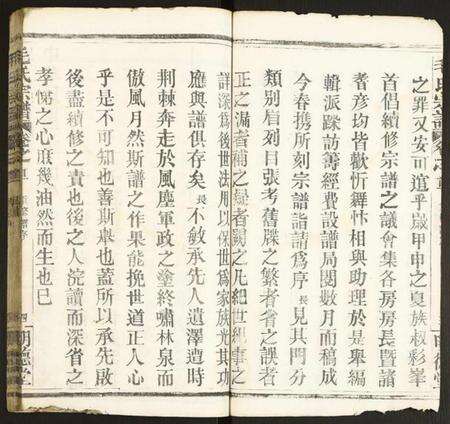 之罪又安可逭乎歲甲申之夏族叔彩峯
首倡續修宗譜之議會集各房房長曁諸
耆彦均皆歡忻舞怵相與助理於是舉編
輯派踩訪籌經費設譜局閱數月而稿成
今春携所刻宗譜詣請爲序長見其門分
類別眉列目張考舊牒之繁者省之誤者
正之漏者補之疑者闕之凡紀世紀事之
詳深爲後世法用以保世爲家族光其功
應與譜俱存矣長不敏承先人遺澤遭時
荆棘奔走於風塵軍政之塗終嘯林泉而
傲風月然斯譜之作果能挽世道正人心
乎是不可知也善斯舉也蓋所以承先啟
後盡續修之責也後之人浣讀而深省之
孝悌之心庶幾油然而生也巳
毛氏宗譜
四
明德堂